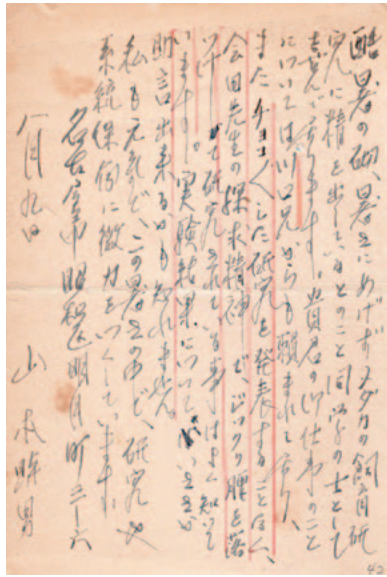 酷暑の砌、暑さにめげずメダカの飼育研
究に精を出しているとのこと同学の士として
喜んで居ります。貴君の御仕事のこと
については川口兄からも頼まれて居り、
またチョコ〱した研究を発表することなく、
会田先生の探求精神で、ジックリ腰を落
つけて研究されている事はよく知って
います。実験結果について いささか
助言出来るかも知れません。
私も元気で、この暑さの中で、研究や
系統保存に微力をつくしています。
名古屋市昭和区明月町三ー六
八月九日 山本時男
42